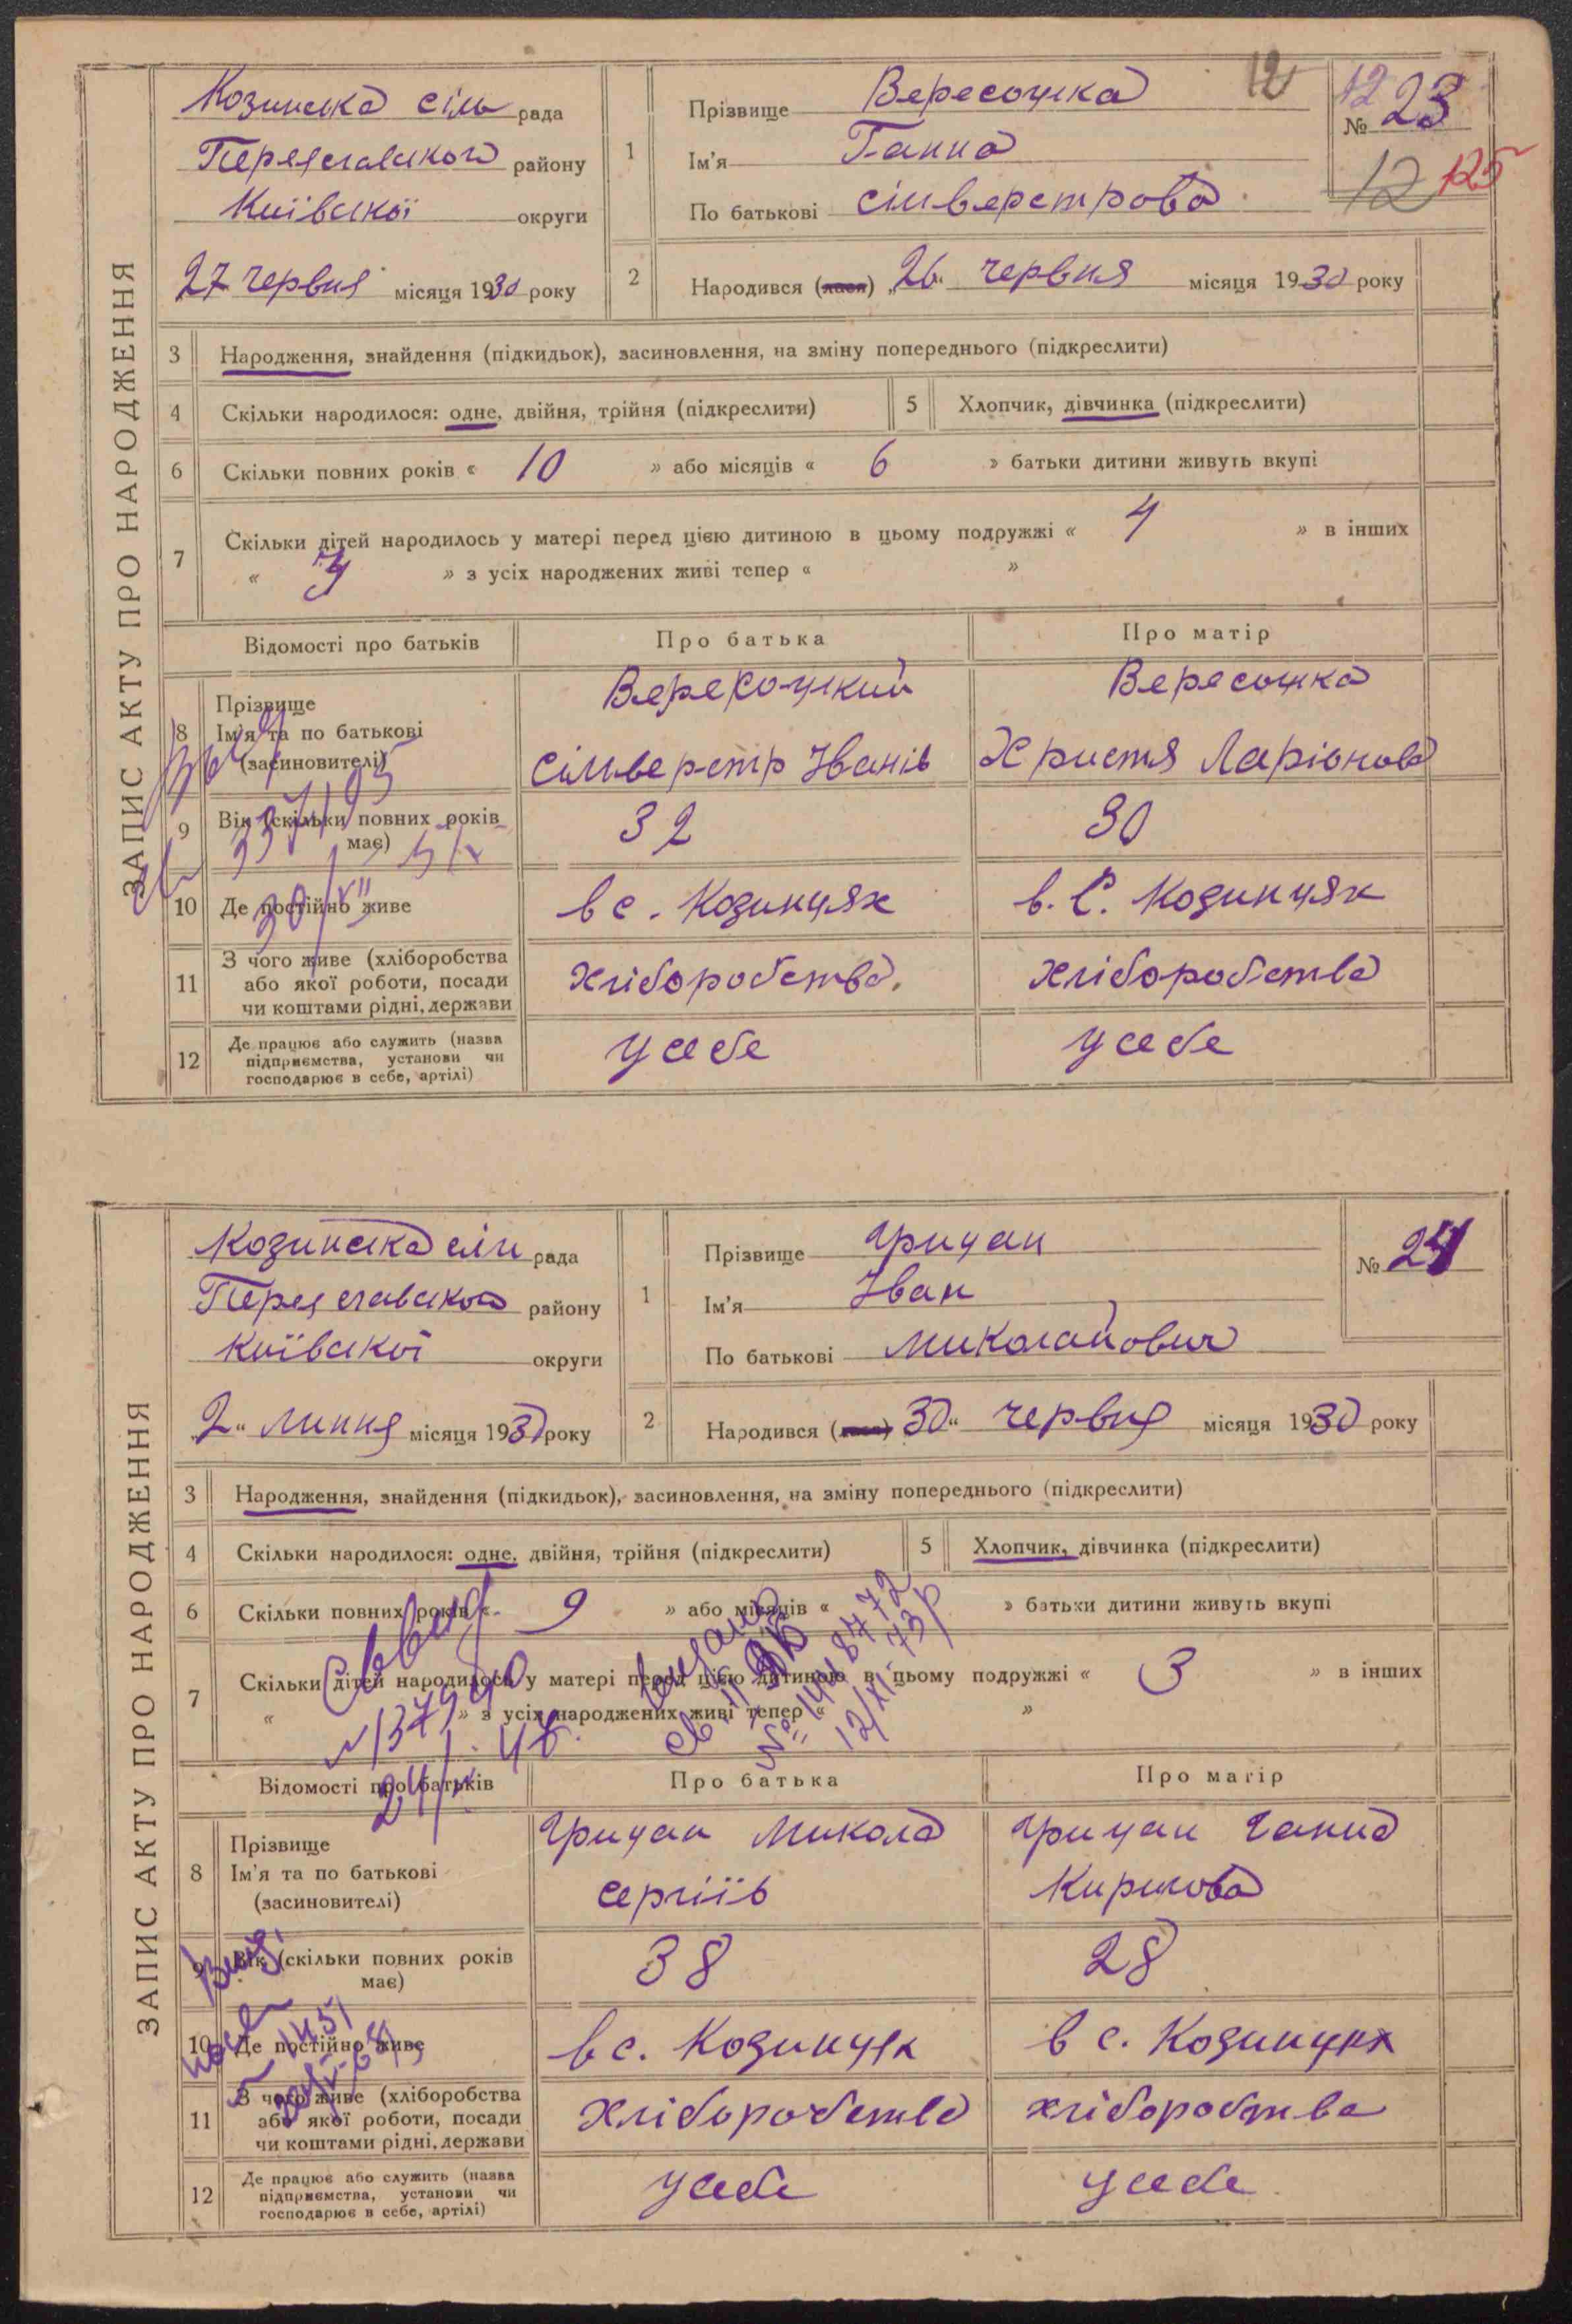 ЗАПИС АКТУ ПРО НАРОДЖЕННЯ
Козинська сіль рада
Переяславського району
Київської округи
27 червня місяця 1930 року
1 Прізвище Вересоцка
Ім'я Ганна
По батькові Сільверстрова
12
№ 23
12 125
2 Народився (лася) „26" червня місяця 1930 року
3 Народження, знайдення (підкидьок), засиновлення, на зміну попереднього (підкреслити)
4 Скільки народилося: одне, двійня, трійня (підкреслити) 5 Хлопчик, дівчинка (підкреслити)
6 Скільки повних років « 10 » або місяців « 6 » батьки дитини живуть вкупі
7 Скільки дітей народилось у матері перед цією дитиною в цьому подружжі « 4 » в інших
« » з усіх народжених живі тепер « »
Відомості про батьків Про батька Про матір
8 Прізвище Ім'я та по батькові (засиновителі) Вересоцкий Сільверстр Іванів Вересоцка Христя Ларіонова
9 Вік (скільки повних років має) 32 30
10 Де постійно живе в с. Козинцях в. С. Козинцях
11 З чого живе (хліборобства або якої роботи, посади чи коштами рідні, держави Хліборобства. Хліборобства
12 Де працює або служить (назва підприємства, установи чи господарює в себе, артілі) У себе У себе
ЗАПИС АКТУ ПРО НАРОДЖЕННЯ
Козинська сіль рада
Переяславського району
Київської округи
„2" липня місяця 1930 року
1 Прізвище Грицан
Ім'я Іван
По батькові Миколайович
№ 24
2 Народився (лася) 30" червня місяця 1930 року
3 Народження, знайдення (підкидьок), засиновлення, на зміну попереднього (підкреслити)
4 Скільки народилося: одне, двійня, трійня (підкреслити) 5 Хлопчик, дівчинка (підкреслити)
6 Скільки повних років « 9 » або місяців « » батьки дитини живуть вкупі
7 Скільки дітей народилось у матері перед цією дитиною в цьому подружжі « 3 » в інших
« » з усіх народжених живі тепер « »
Відомості про батьків Про батька Про матір
8 Прізвище Ім'я та по батькові (засиновителі) Грицан Микола Сергіїв Грицан Ганна Кирилова
9 Вік (скільки повних років має) 38 28
10 Де постійно живе в с. Козинцях в с. Козинцях
11 З чого живе (хліборобства або якої роботи, посади чи коштами рідні, держави Хліборобства хліборобства
12 Де працює або служить (назва підприємства, установи чи господарює в себе, артілі) У себе У себе